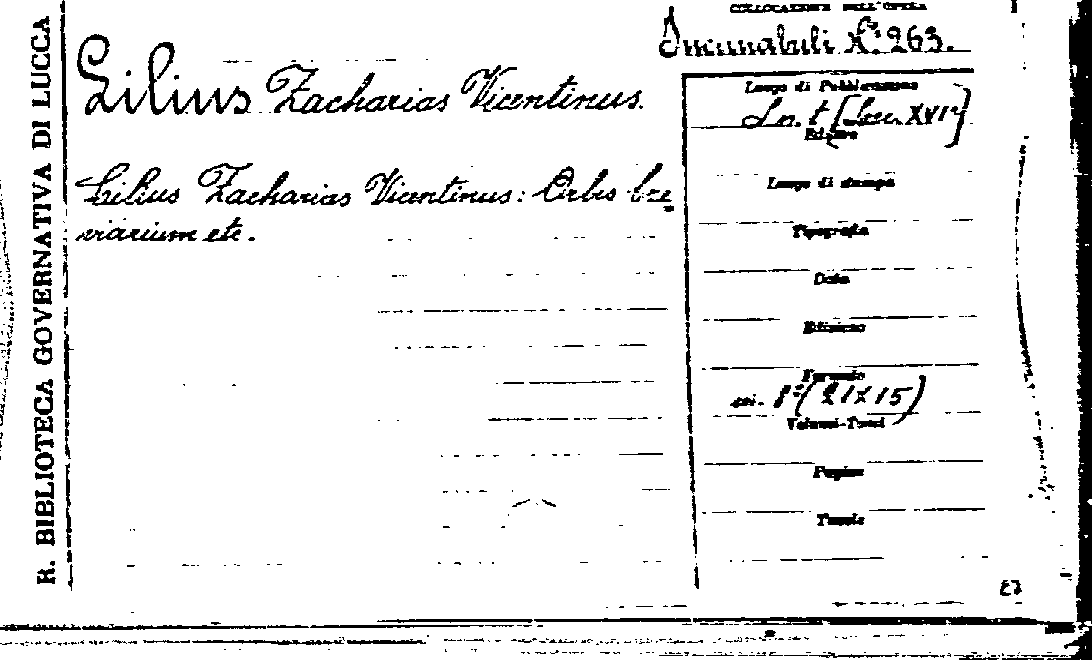 R. BIBLIOTECA GOVERNATIVA DI LUCCA
COLLOCAZIONE DELL'OPERA
Incunabuli N.º 263.
Lilius Zacharias Vicentinus.
Lilius Zacharias Vicentinus: Orbis bre
viarium etc.
Luogo di Pubblicazione
S.n.t. [Sec. XVI]
Editore
Luogo di stampa
Tipografia
Data
Edizione
Formato
in. 8º (21x15)
Volumi-Tomi
Pagine
Tavole